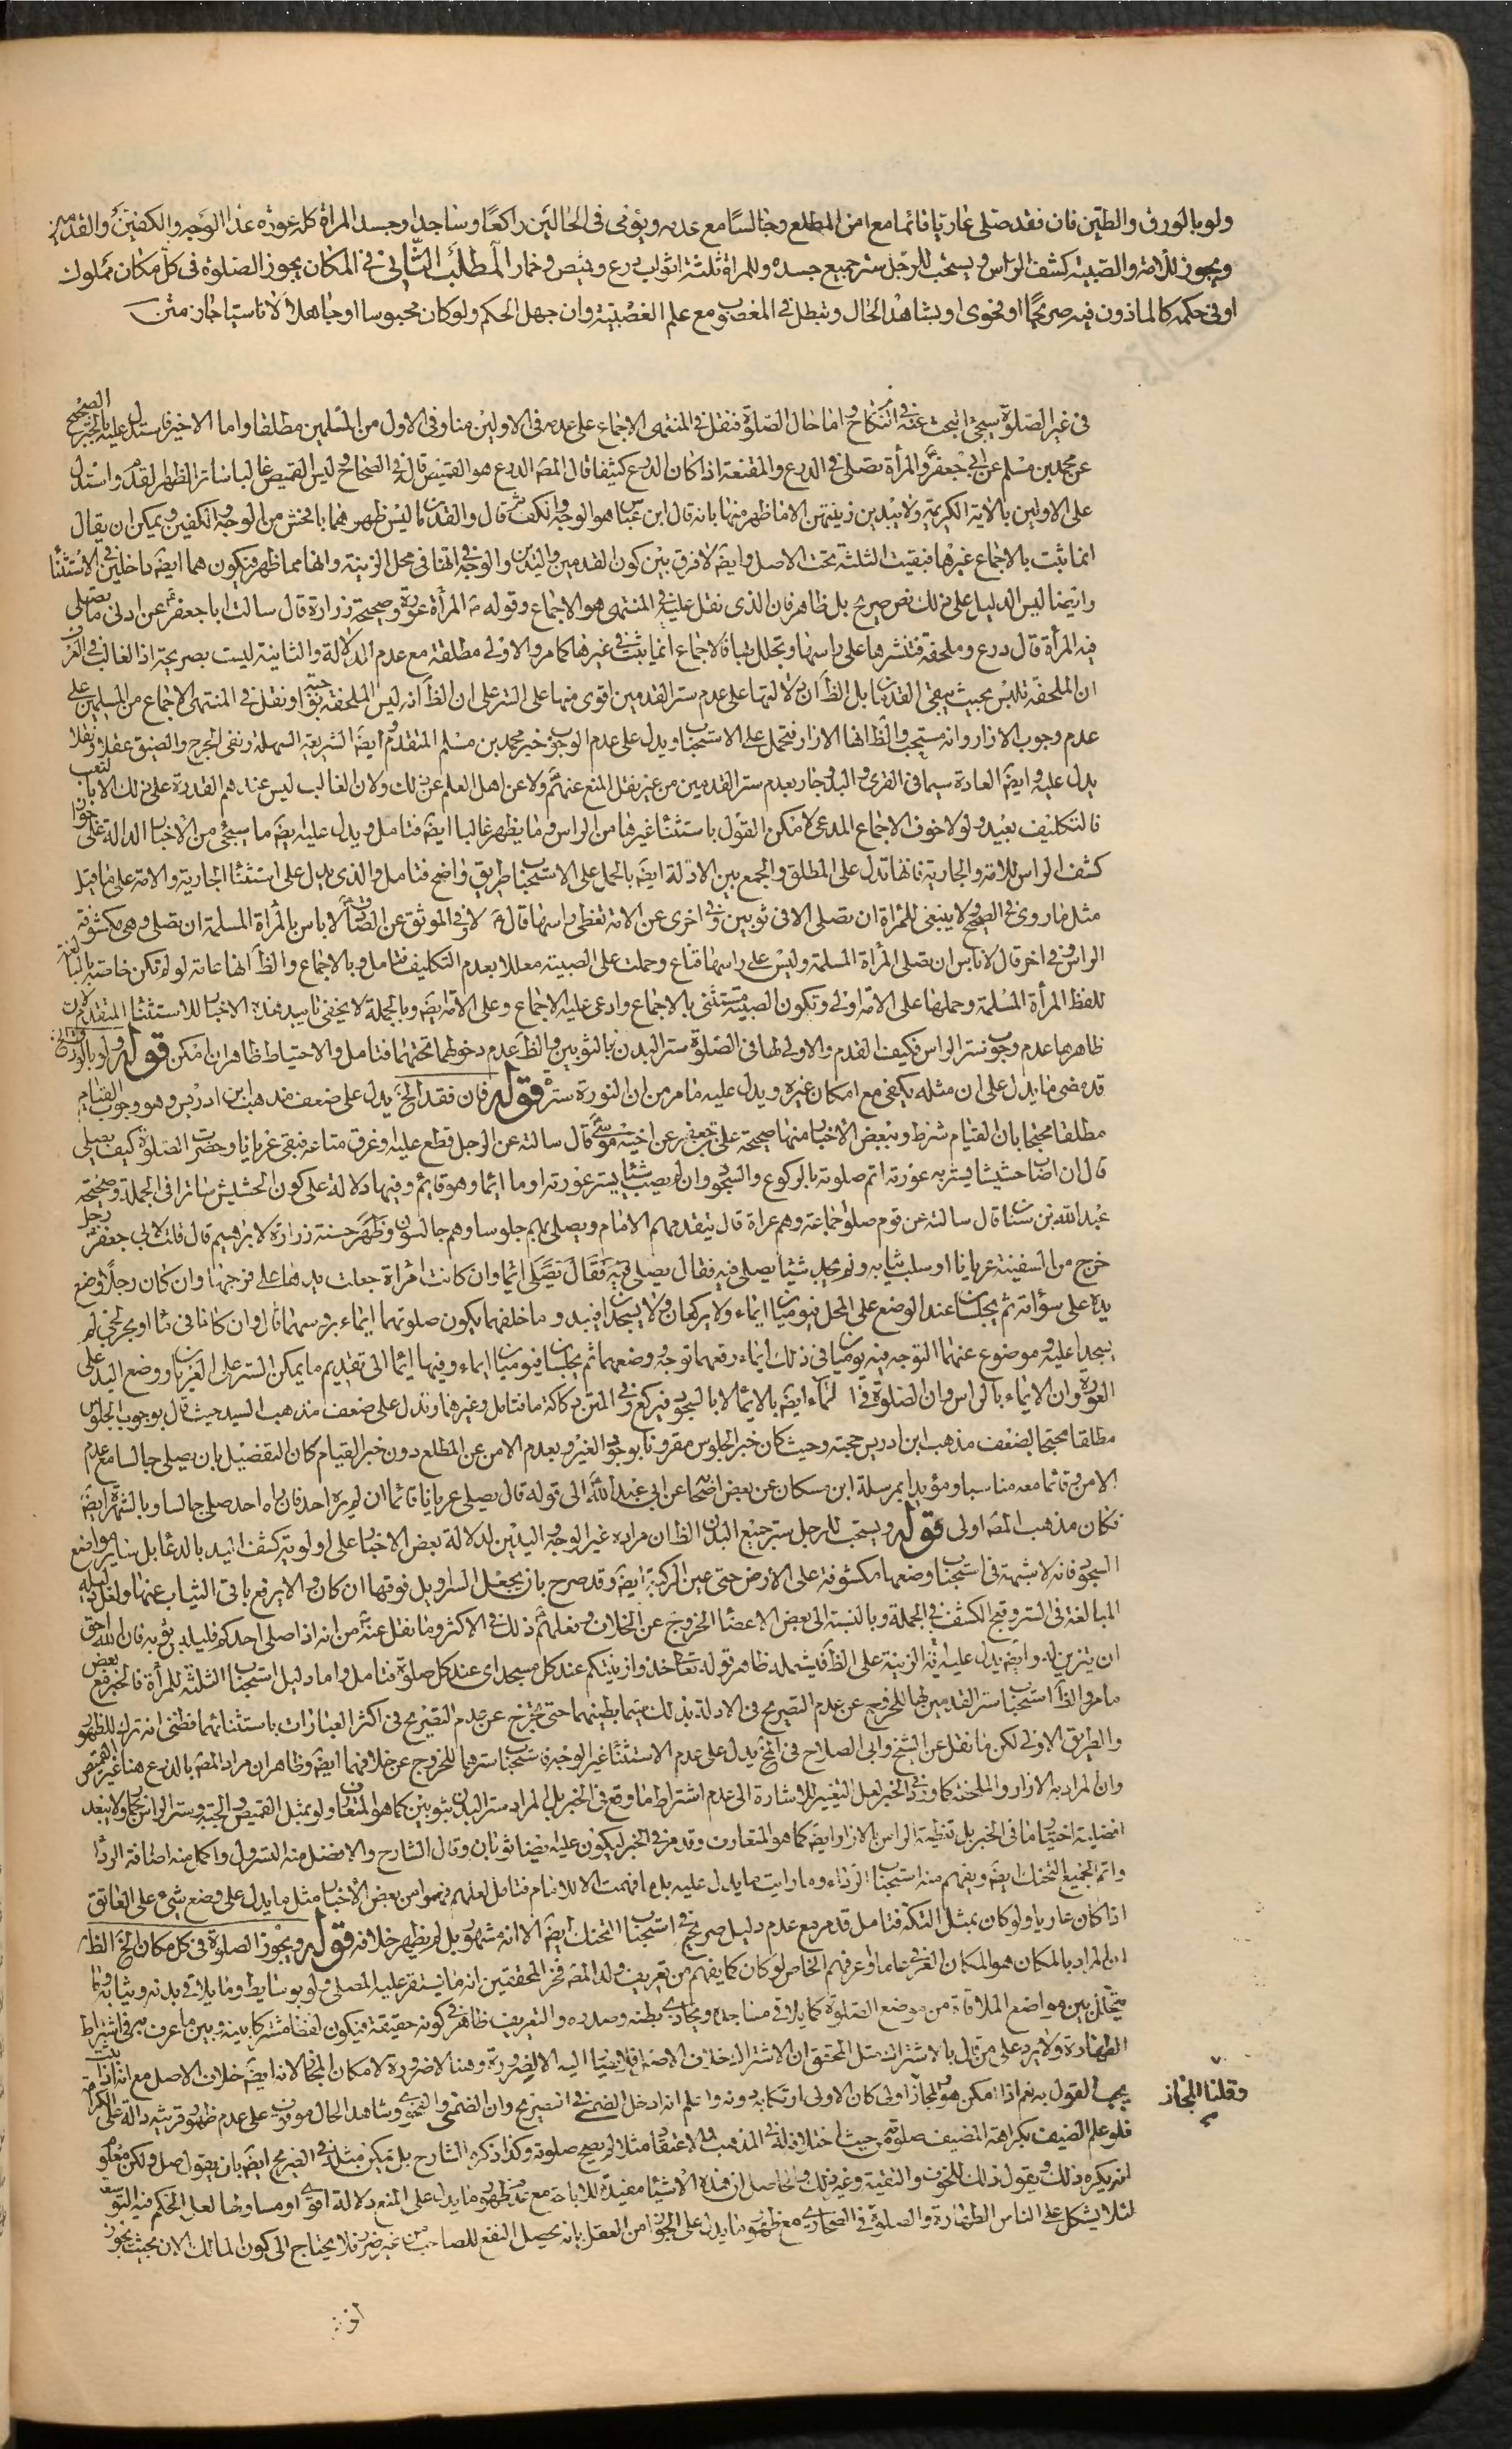 ولو بالورق والطين فان فقد صلى عاريا قائما مع امن المطلع وجالسا مع عدمه ويؤمى فى الحالين راكعا وساجدا وجسد المراة كله عورة عدا الوجه والكفين والقدمين
ويجوز للامة والصبية كشف الراس ويستحب للرجل ستر جميع جسده وللمراة ثلثة اثواب درع وقميص وخمار المطلب الثانى فى المكان يجوز الصلوة فى كل مكان مملوك
او فى حكمه كالماذون فيه صريحا او فحوى او بشاهد الحال وتبطل فى المغصوب مع علم الغصبية وان جهل الحكم ولو كان محبوسا او جاهلا لا ناسيا جاز متن
فى غير الصلوة سيجئ البحث عنه فى النكاح واما حال الصلوة فنقل فى المنتهى الاجماع على عدمه فى الاولين منا وفى الاول من المسلمين مطلقا واما الاخير فاستدل عليه بالخبر الصحيح
عن محمد بن مسلم عن ابى جعفر والمرأة تصلى فى الدرع والمقنعة اذا كان الدرع كثيفا قال المص الدرع هو القميص قاله فى الصحاح وليس القميص غالبا ساترا لظهر القدم واستدل
على الاولين بالاية الكريمة ولا يبدين زينتهن الا ما ظهر منها بانه قال ابن عباس هو الوجه والكف قال والقدمان ليس ظهورهما بافحش من الوجه والكفين ويمكن ان يقال
انما ثبت بالاجماع غيرها فبقيت الثلثة تحت الاصل وايضا لا فرق بين كون القدمين واليدين والوجه فى انها فى محل الزينة وانها مما ظهر فيكون هما ايضا داخلين فى الاستثناء
وايضا ليس الدليل على ذلك نص صريح بل ظاهر فان الذى نقل عليه فى المنتهى هو الاجماع وقوله المرأة عورة وصحيحة زرارة قال سالت ابا جعفر عن ادنى ما تصلى
فيه المرأة قال درع وملحفة فتنشرها على راسها وتجلل بها فالاجماع انما يثبت فى غيرها كما مر والاولى مطلقة مع عدم الدلالة والثانية ليست بصريحة اذ الغالب فى العرف
ان الملحفة تلبس بحيث يبقى القدمان بل الظ ان دلالتها على عدم ستر القدمين اقوى منها على الستر على ان الظ انه ليس الملحفة ونقل فى المنتهى الاجماع من المسلمين على
عدم وجوب الازار وانه مستحب والظ انها الازار فتحمل على الاستحباب ويدل على عدم الوجوب خبر محمد بن مسلم المتقدم وايضا الشريعة السهلة ونفى الحرج والضيق عقلا ونقلا
يدل عليه وايضا العادة سيما فى القرى والبدو جار بعدم ستر القدمين من غير نقل المنع عنهم ولا عن اهل العلم عن ذلك ولان الغالب ليس عندهم القدرة على ذلك الا بالتعب
فالتكليف بعيد ولولا خوف الاجماع المدعى لامكن القول باستثناء غيرها من الراس وما يظهر غالبا ايضا فتامل ويدل عليه ايضا ما سيجئ من الاخبار الدالة على جواز
كشف الراس للامة والجارية فانها تدل على المطلق والجمع بين الادلة ايضا بالحمل على الاستحباب طريق واضح فتامل والذى يدل على استثناء الجارية والامة على ما قيل
مثل ما روى فى الصحيح ولا ينبغى للمرأة ان تصلى الا فى ثوبين وفى اخرى عن الامة تغطى راسها قال لا وفى الموثق عن الصادق لا باس بالمرأة المسلمة ان تصلى وهى مكشوفة
الراس وفى اخر قال لا باس ان تصلى المرأة المسلمة وليس على راسها قناع وحملت على الصبية معللا بعدم التكليف فتامل وبالاجماع والظ انها عامة لو لم تكن خاصة بالبالغة
للفظ المرأة المسلمة وحملها على الامة اولى وتكون الصبية مستثنى بالاجماع وادعى عليه الاجماع وعلى الامة ايضا وبالجملة لا يخفى تاييد هذه الاخبار للاستثناء المتقدم لان
ظاهرها عدم وجوب ستر الراس فكيف القدم والاولى لها فى الصلوة ستر البدن بالثوبين والظ عدم دخولهما تحتهما فتامل والاحتياط ظاهر ان امكن قوله ولو بالورق الخ
قد مضى ما يدل على ان مثله يكفى مع امكان غيره ويدل عليه ما مر من ان النورة سترة قوله فان فقد الخ يدل على ضعف مذهب ابن ادريس وهو وجوب القيام
مطلقا محتجا بان القيام شرط وببعض الاخبار منها صحيحة على بن جعفر عن اخيه موسى قال سالته عن الرجل قطع عليه وغرق متاعه فبقى عريانا وحضرت الصلوة كيف يصلى
قال ان اصاب حشيشا يستر به عورته اتم صلوته بالركوع والسجود وان لم يصب شيئا يستر عورته اومأ ايماء وهو قائم وفيها دلالة على كون الحشيش ساترا فى الجملة وصحيحة
عبد الله بن سنان قال سالته عن قوم صلوا جماعة وهم عراة قال يتقدمهم الامام ويصلى بهم جلوسا وهم جالسون وظهر حسنة زرارة لابراهيم قال قلت لابى جعفر رجل
خرج من السفينة عريانا او سلب ثيابه ولم يجد شيئا يصلى فيه فقال يصلى فيه فقال يصلى ايماء وان كانت امراة جعلت يدها على فرجها وان كان رجلا وضع
يده على سؤاته ثم يجلسان عند الوضع على المحل فيوميان ايماء ولا يركعان ولا يسجدان فيبدو ما خلفهما يكون صلوتهما ايماء برؤسهما قال وان كانا فى ماء او بحر لجى لم
يسجدا عليه وموضوع عنهما التوجه فيه يوميان فى ذلك ايماء رفعهما توجه ووضعهما ثم يجلسان فيوميان ايماء وفيها ايماء الى تقديم ما يمكن الستر على العريان ووضع اليد على
العورة وان الايماء بالراس وان الصلوة فى الماء ايضا بالايماء لا بالسجود فيركع وفى المتن وكانه ما فتامل وغيرها وتدل على ضعف مذهب السيد حيث قال بوجوب الجلوس
مطلقا محتجا بضعف مذهب ابن ادريس حجته وحيث كان خبر الجلوس مقرونا بوجود الغير وبعدم الامن عن المطلع دون خبر القيام كان التفضيل بان يصلى جالسا مع عدم
الامن وقائما معه مناسبا ومؤيدا بمرسلة ابن مسكان عن بعض اصحابنا عن ابى عبد الله الى قوله قال يصلى عريانا قائما ان لم يره احد فان راه احد صلى جالسا وبالشهرة ايضا
فكان مذهب المص اولى قوله ويستحب للرجل ستر جميع البدن الظ ان مراده غير الوجه واليدين لدلالة بعض الاخبار على اولوية كشف اليد بالدعاء بل سائر مواضع
السجود فانه لا شبهة فى استحباب وضعها مكشوفة على الارض حتى عين الركبة ايضا وقد صرح بان يجعل السراويل فوقها ان كان والا يرفع باقى الثياب عنها ولعل دليله
المبالغة فى الستر وقبح الكشف فى الجملة وبالنسبة الى بعض الاعضاء الخروج عن الخلاف وفعلهم ذلك فى الاكثر وما نقل عنه من انه اذا صلى احدكم فليلبس ثوبه فان الله احق
ان يتزين له وايضا يدل عليه انه الزينة على الظ فيشمله ظاهر قوله تعالى خذوا زينتكم عند كل مسجد اى عند كل صلوة فتامل واما دليل استحباب الثلثة للمرأة فالخبر مع بعض
ما مر والظ استحباب ستر القدمين لها للخروج عن عدم التصريح فى الادلة بذلك سيما بطنهما حتى يخرج عن عدم التصريح فى اكثر العبارات باستثنائهما فظنى انه ترك للظهور
والطريق الاولى لكن ما نقل عن الشيخ وابى الصلاح فى الخ يدل على عدم الاستثناء غير الوجه فاستحباب سترها للخروج عن خلافهما ايضا وظاهر ان مراد المص بالدرع هنا غير القميص
وان المراد به الازار والملحفة كما ورد فى الخبر لعل التغيير للاشارة الى عدم اشتراط ما وقع فى الخبر بل المراد ستر البدن بثوبين كما هو المتعارف ولو بمثل القميص والجبة وستر الراس بخمار ولا يبعد
افضلية اختيار ما فى الخبر بل تغطية الراس بالازار ايضا كما هو المتعارف وقد مر فى الخبر ليكون عليه ايضا ثوبان وقال الشارح والافضل منه التسرول واكمل منه اضافة الرداء
واتم الجميع التحنك ايضا ويفهم منه استحباب الرداء وما رايت ما يدل عليه بل ما فهمت الا للامام فتامل لعلهم فهموا من بعض الاخبار مثل ما يدل على وضع شئ على العاتق
اذا كان عاريا ولو كان بمثل التكة فتامل قد مر مع عدم دليل صريح فى استحباب التحنك ايضا الا انه مشهور بل لم يظهر خلافه قوله ويجوز الصلوة فى كل مكان الخ الظ
ان المراد بالمكان هو المكان العرفى عاما او عرفهم الخاص لو كان كما يفهم من تعريف ولد المص فخر المحققين انه ما يستقر عليه المصلى ولو بوسايط وما يلاقى بدنه وثيابه وما
يتخلل بين مواضع الملاقاة من موضع الصلوة كما يلاقى مساجده ويحاذى بطنه وصدره والتعريف ظاهر فى كونه حقيقة فيكون لفظا مشتركا بينه وبين ما عرف به فى اشتراط
الطهارة ولا يرد على من قال بالاشتراك مثل المحقق ان الاشتراك خلاف الاصل فلا يصار اليه الا لضرورة وهنا لا ضرورة لامكان المجاز لانه ايضا خلاف الاصل مع انه اذا ثبت
وقلنا المجاز
يجب القول به نعم اذا امكن هو والمجاز اولى كان الاولى ارتكابه دونه واعلم انه ادخل الضمنى فى الصريح وان الضمنى والفحوى وشاهد الحال موقوف على عدم ظهور قرينة دالة على الكراهة
فلو علم الضيف بكراهة المضيف صلوته من حيث اختلافه له فى المذهب والاعتقاد مثلا لم يصح صلوته وكذا ذكره الشارح بل يمكن مثله فى الصريح ايضا بان يقول صل ولكن معلوم
انه يكره ذلك ويقول ذلك للخوف والتقية وغير ذلك والحاصل ان هذه الاشياء مفيدة للاباحة مع عدم ظهور ما يدل على المنع دلالة اقوى او مساويا لعل الحكم فيه التوسعة
لئلا يشكل على الناس الطهارة والصلوة فى الصحارى مع ظهور ما يدل على الجواز من العقل بانه يحصل النفع للصاحب من غير ضرر فلا يحتاج الى كون المالك الان بحيث يجوز